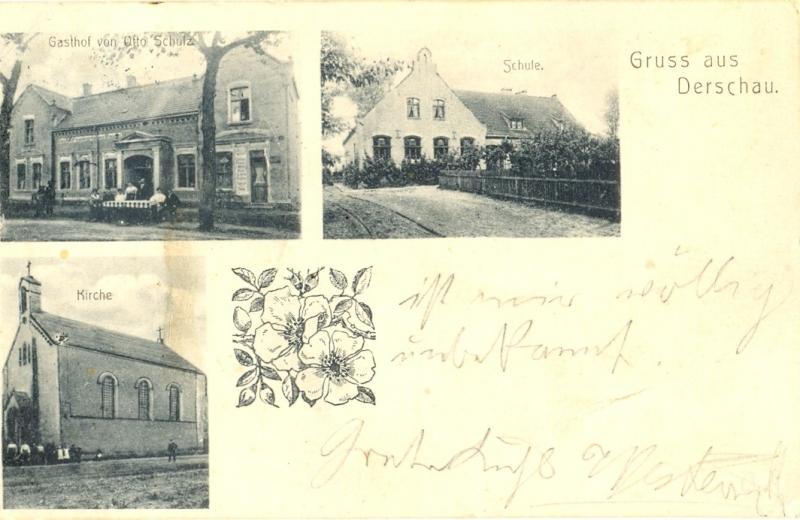 Gasthof von Otto Schulz
Schule.
Gruss aus
Derschau.
Kirche
ist mir völlig
unbekannt.